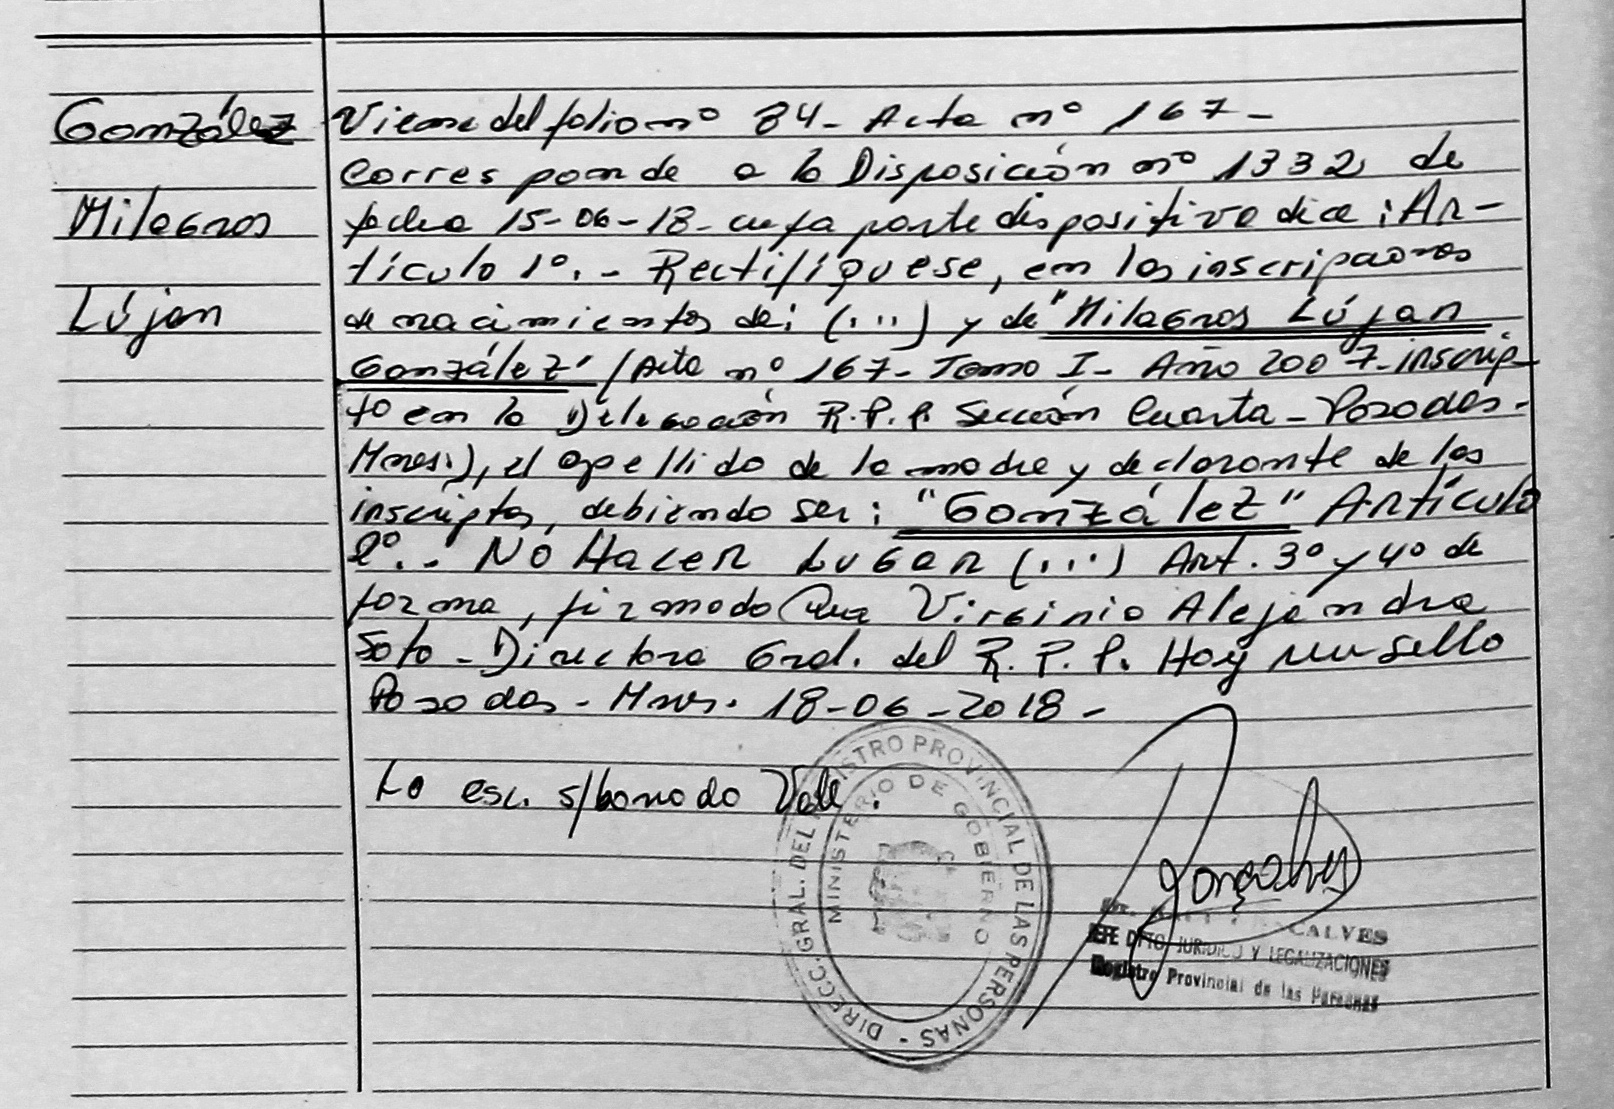 González
Milagros
Lújan
Viene del folio nº 84- Acta nº 167-
Corresponde a la Disposición nº 1332, de
fecha 15-06-18- cuya parte dispositiva dice: Ar-
tículo 1º.- Rectifíquese, en las inscripciones
de nacimientos de: (...) y de "Milagros Lújan
González" (Acta nº 167- Tomo I- Año 2007- inscrip-
to en la Delegación R.P.P. Sección Cuarta- Posadas-
Mnes.), el apellido de la madre y declarante de los
inscriptos, debiendo ser: "González" Artículo
2º.- No Hacer Lugar (...) Art. 3º y 4º de
forma, firmado Virginia Alejandra
Soto- Directora Gral. del R.P.P. Hay un sello
Posadas- Mnes. 18-06-2018-
Lo esc. s/borrado Vale.
DIRECC. GRAL. DEL REGISTRO PROVINCIAL DE LAS PERSONAS -
MINISTERIO DE GOBIERNO
Gonçalves
CALVES
JEFE DPTO. JURIDICO Y LEGALIZACIONES
Registro Provincial de las Personas